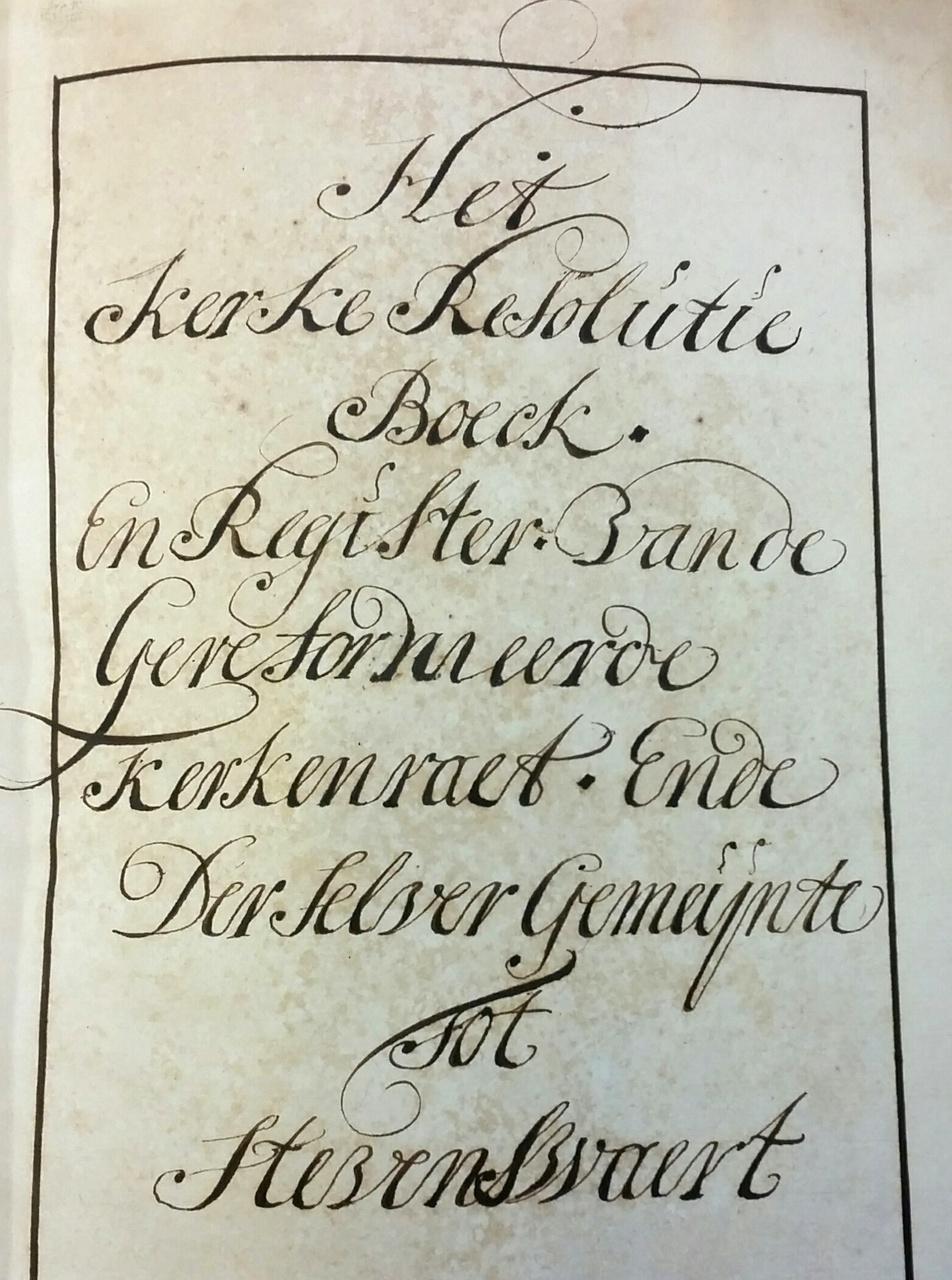 Het
Kerke Resolutie
Boeck.
En Register: Vande
Gereformeerde
Kerkenraet. Ende
Der Selver Gemeijnte
Tot
Stevenswaert